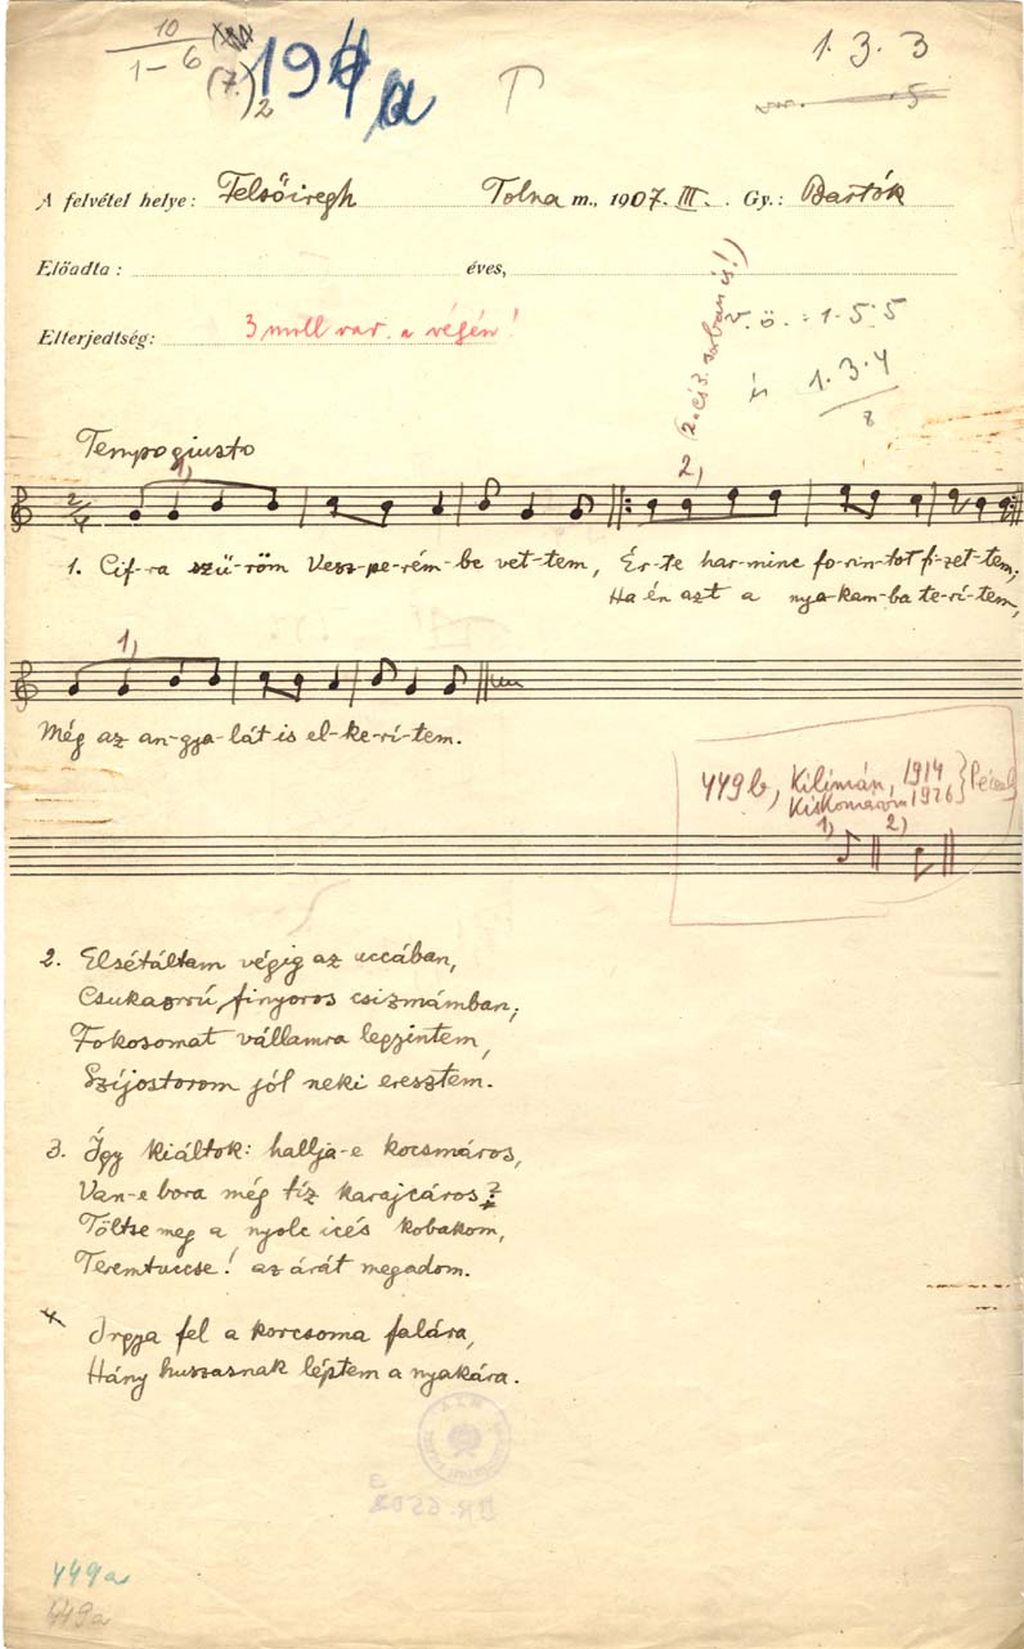 10
1-6
(7.)
2
191
a
T
1. 3. 3
var. 5
A felvétel helye: Felsőiregh Tolna m., 1907. III. Gy.: Bartók
Előadta : éves,
Elterjedtség: 3 moll var. a végén!
(2. és 3. sorban is!)
v. ö. : 1. 5. 5
és 1. 3. 4
8
Tempo giusto
1)
2)
2/4
1. Cif-ra szü-röm Vesz-pe-rém-be vet-tem, Ér-te har-minc fo-rin-tot fi-zet-tem;
Ha én azt a nya-kam-ba te-rí-tem,
1)
Még az an-gya-lát is el-ke-rí-tem.
449b, Kilimán, 1914
Kiskomárom 1926
1) 2)
2. Elsétáltam végig az uccában,
Csukaorrú finyoros csizmámban;
Fokosomat vállamra legyintem,
Szíjostorom jól neki eresztem.
3. Így kiáltok: hallja-e kocsmáros,
Van-e bora még tíz karajcáros?
Töltse meg a nyolc icés kobakom,
Teremtuccse! az árát megadom.
4 Irgya fel a korcsoma falára,
Hány huszasnak léptem a nyakára.
449a
449a